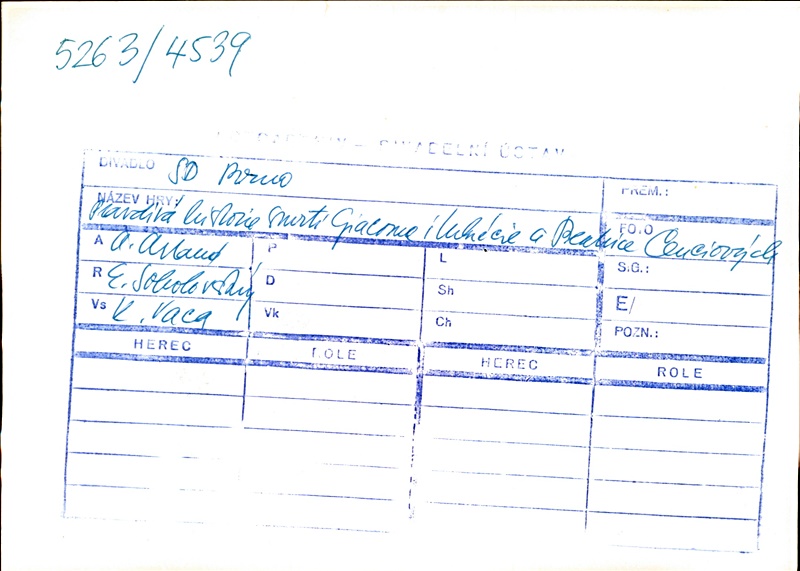 5263/4539
DIVADELNÍ ÚSTAV
DIVADLO SD Brno
PREM.:
NÁZEV HRY: Pravdivá historie smrti Giacoma, Lukrécie a Beatrice Cenciových
FOTO
A A. Artaud
P
L
S.G.:
R E. Sokolovský
D
Sh
E/
Vs K. Vaca
Vk
Ch
POZN.:
HEREC ROLE HEREC ROLE